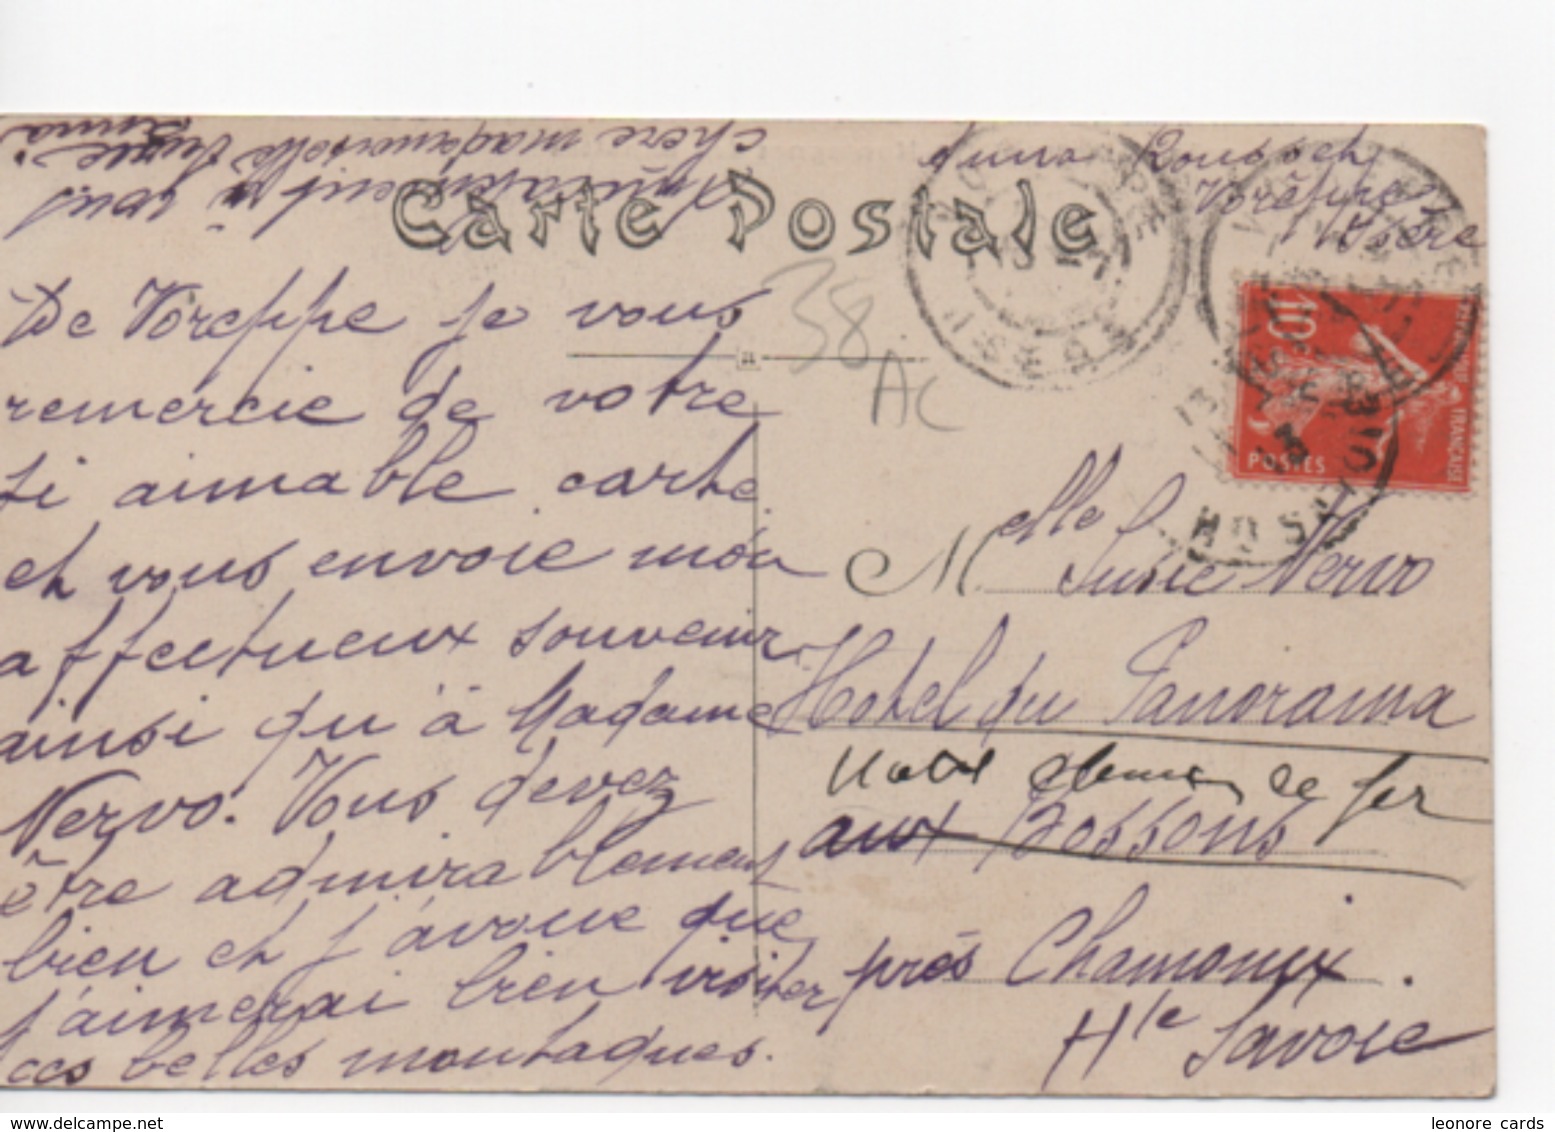 Carte Postale
Anna Roussek
Voreppe
Isère
38
AC
10
POSTES
FRANÇAISE
ISERE
De Voreppe je vous
remercie de votre
si aimable carte
et vous envoie mon
affectueux souvenir
ainsi qu'à Madame
Nervo. Vous devez
être admirablement
bien et j'avoue que
j'aimerai bien visiter
ces belles montagnes.
Amicalement à vous
chère mademoiselle Susie
Anna
Melle Susie Nervo
Hotel du Panorama
Hotel chemin de fer
aux Bossons
près Chamonix.
Hte Savoie
www.delcampe.net
leonore cards